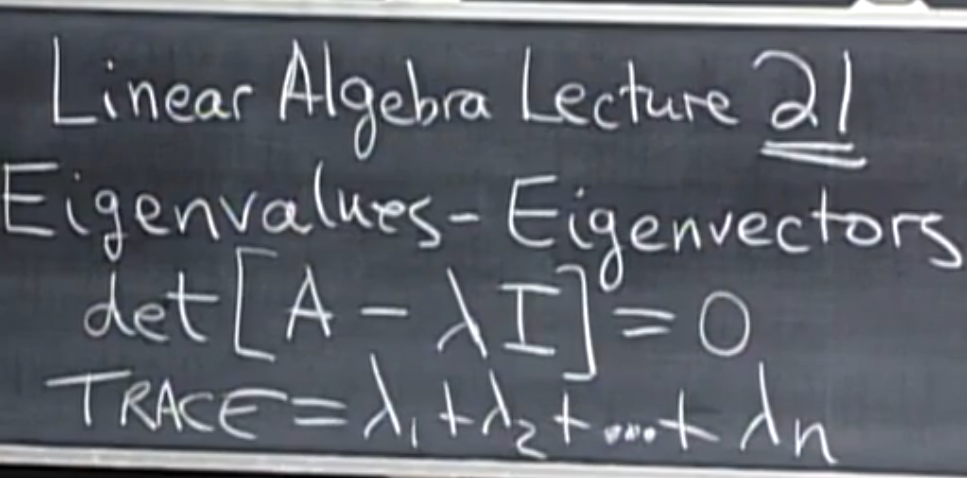 Linear Algebra Lecture 21
Eigenvalues - Eigenvectors
det[A - λI] = 0
TRACE = λ₁ + λ₂ + .... + λn